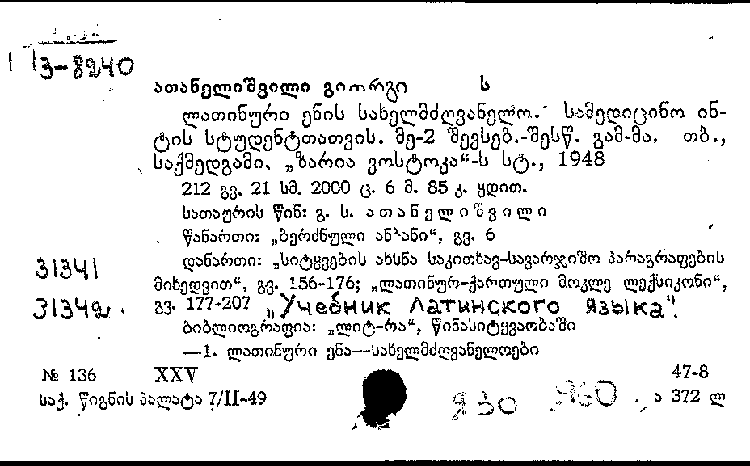 13-8240
ათანელიშვილი გიორგი ს
ლათინური ენის სახელმძღვანელო. სამედიცინო ინ-
ტის სტუდენტთათვის. მე-2 შევსებ.-შესწ. გამ-მა. თბ.,
საქმედგამი, „ზარია ვოსტოკა“-ს სტ., 1948
212 გვ. 21 სმ. 2000 ც. 6 მ. 85 კ. ყდით.
სათაურის წინ: გ. ს. ათანელიშვილი
წანართი: „ბერძნული ანბანი“, გვ. 6
დანართი: „სიტყვების ახსნა საკითხავ-სავარჯიშო პარაგრაფების
31341 მიხედვით“, გვ. 156-176; „ლათინურ-ქართული მოკლე ლექსიკონი“,
31342. გვ. 177-207 „Учебник латинского языка".
ბიბლიოგრაფია: „ლიტ-რა“, წინასიტყვაობაში
—1. ლათინური ენა—სახელმძღვანელოები
№ 136 XXV 47-8
საქ. წიგნის პალატა 7/II-49 ა 372 ლ